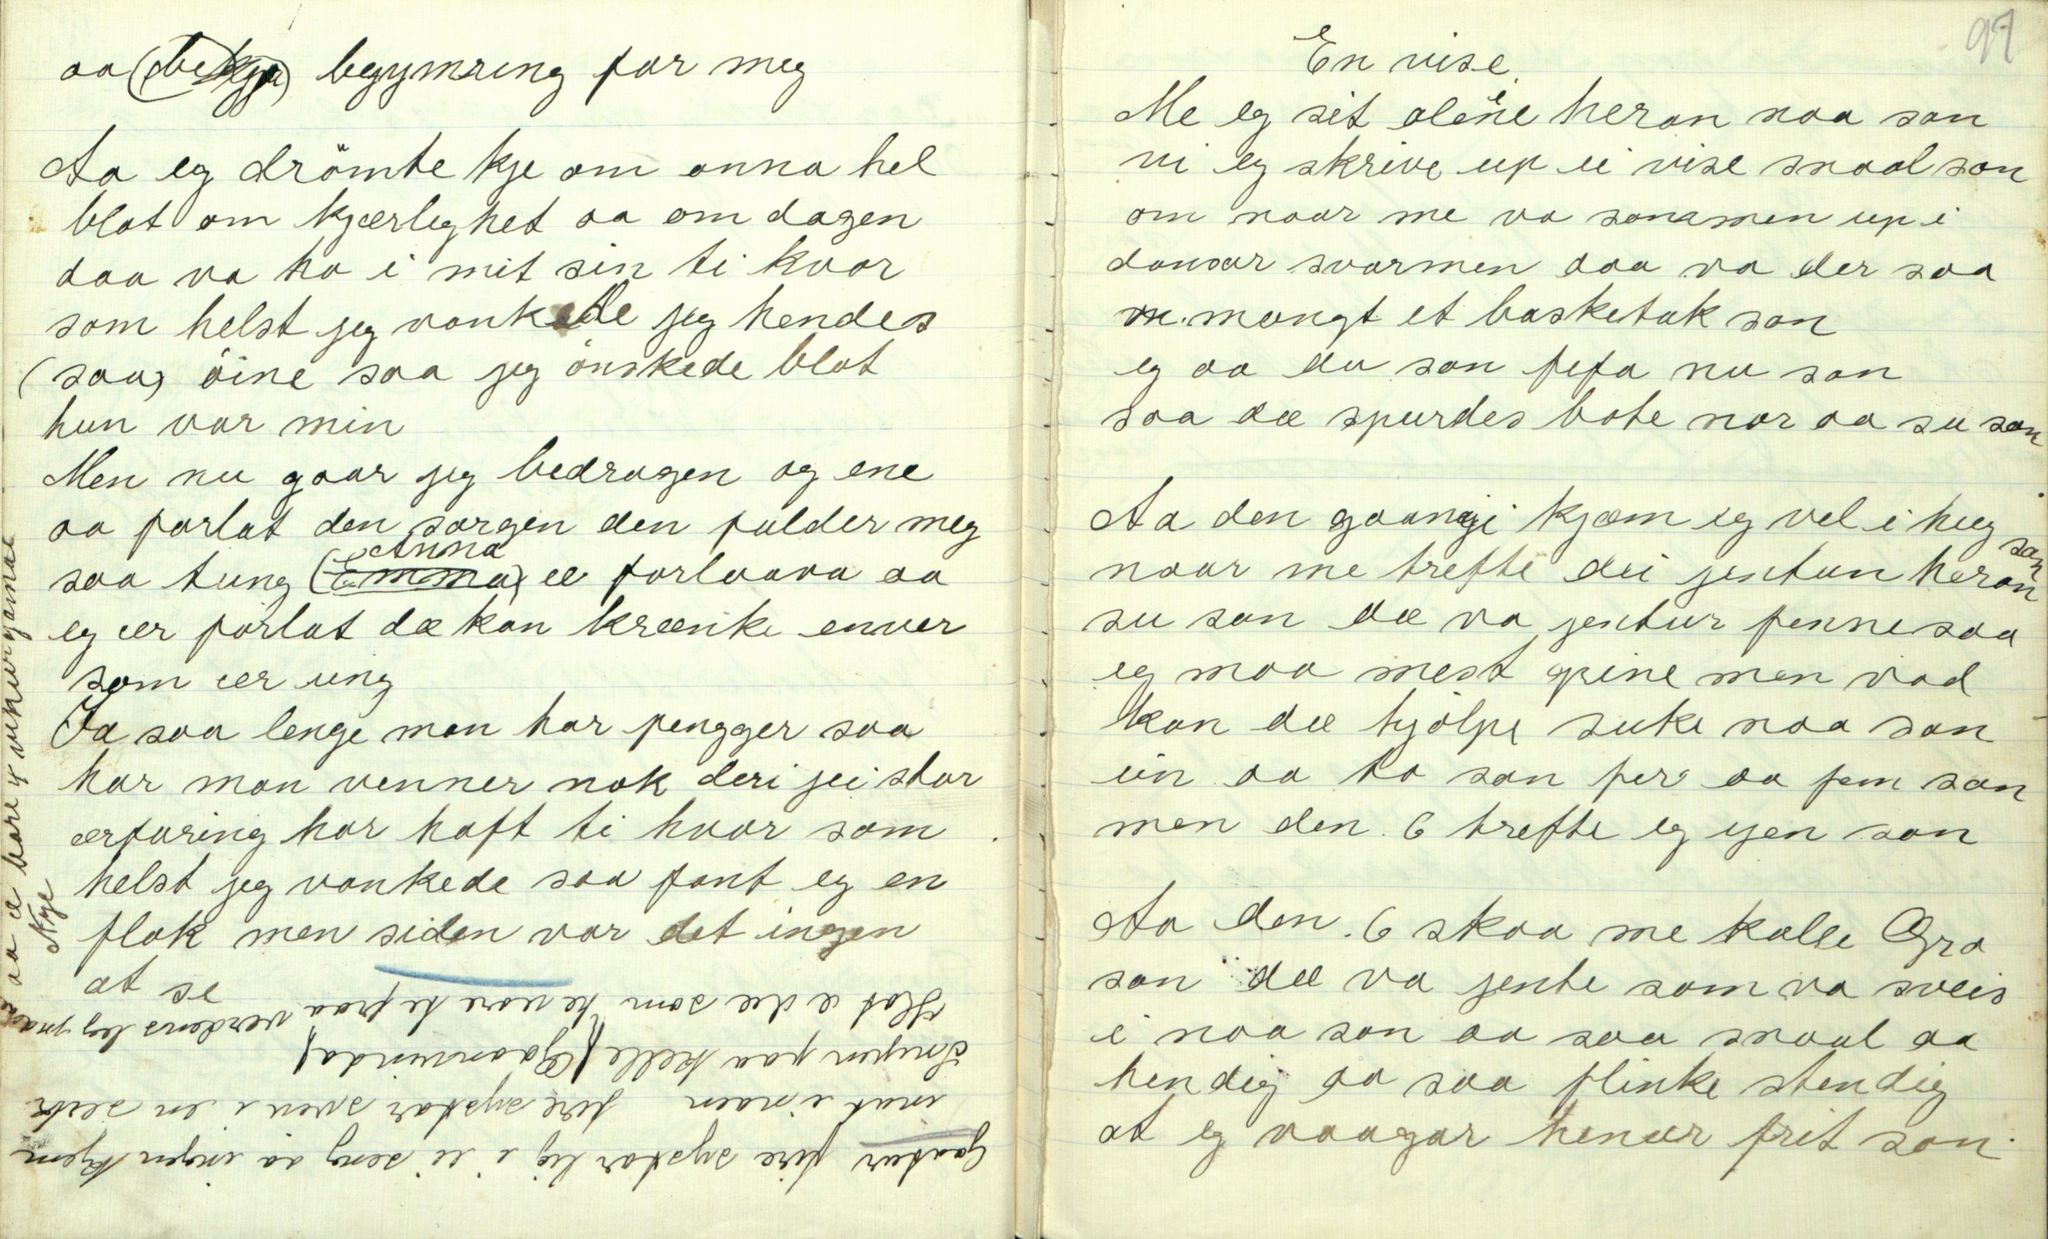 aa (bekja) begymring for meg
Aa eg drömte kje om anna hel
blot om kjærleghet aa om dagen
daa va ho i mit sin ti kvor
som helst jeg vankede jeg hendes
(saa) öine saa jeg önskede blot
hun var min
Men nu gaar jeg bedragen og ene
aa forlat den sorgen den falder meg
saa tung (Emma) Anna ee forlaava aa
eg ær forlat dæ kan krænke enver
som ær ung
Ja saa lenge man har pengger saa
har man venner nok deri jei stor
ærfaring har haft ti hvor som
helst jeg vankede saa fant eg en
flok men siden var det ingen
at se
Gaatur fire systar lig i ei seng aa ingen kjem
mat i naen fire systar sven i en seter
Inngen paa kelle (Gaamunda)
Hot e dæ som te være te paa verdens leg
aa æ bare
Nye
97
En vise
Me eg sit alene heran naa san
vi eg skrive up ei vise snaal san
om naar me va sanamen up i
dansar svarmen daa va der saa
m. mangt et basketak san
eg aa du san fefa nu san
saa dæ spurdes bate nor aa su san
Aa den gaangji kjæm eg vel i hug san
naar me trefte dei jentun heran
su san dæ va jentur fenne saa
eg maa mest grine men vad
kan dæ hjölpe suke naa san
ein aa to san fer aa fem san
men den 6 trefte eg gjen san
Aa den .6 skaa me kalle Gro
san dæ va jente som va sveis
i naa san aa saa snaal aa
hendig aa saa flinke stendig
at eg vaagar henær frit san.